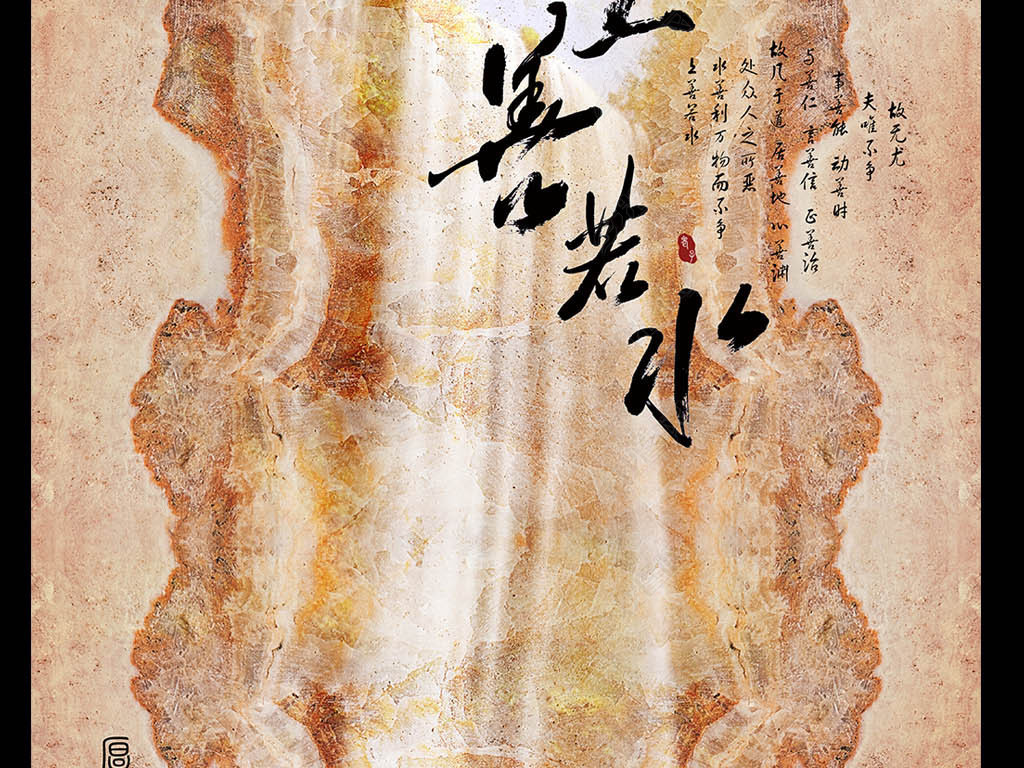 上善若水
上善若水
水善利万物而不争
处众人之所恶
故几于道 居善地 心善渊
与善仁 言善信 正善治
事善能 动善时
夫唯不争
故无尤